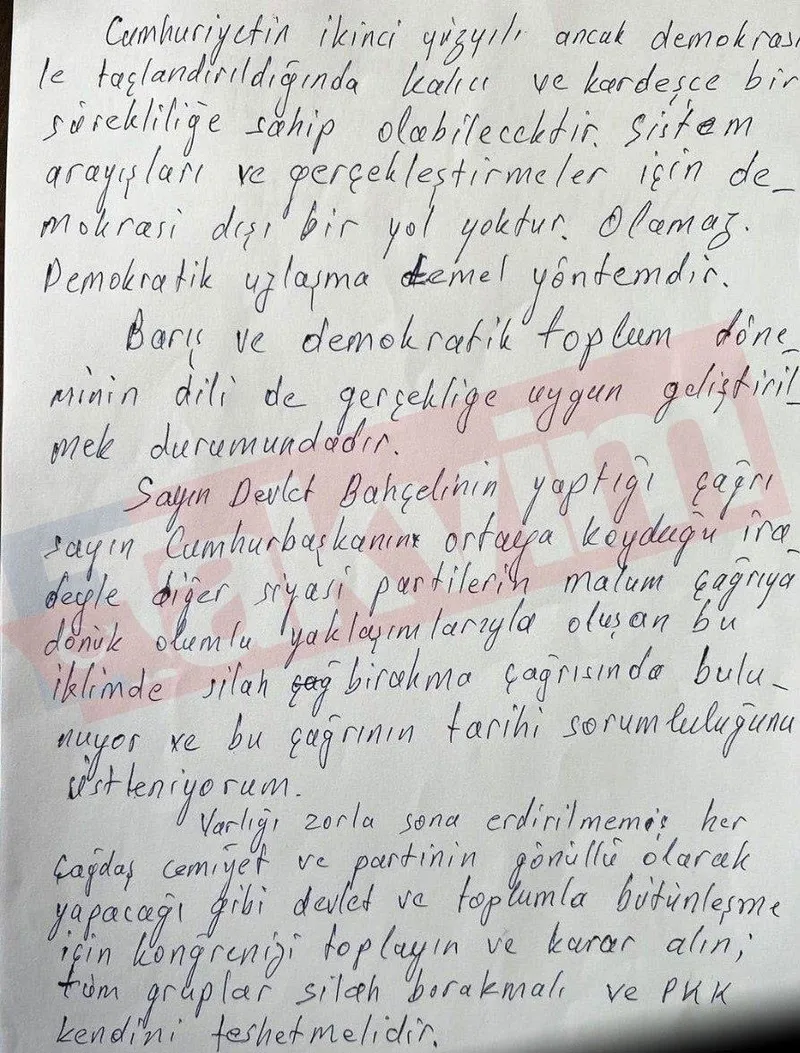 Cumhuriyetin ikinci yüzyılı ancak demokrasi
le taçlandırıldığında kalıcı ve kardeşçe bir
sürekliliğe sahip olabilecektir. Sistem
arayışları ve gerçekleştirmeler için de_
mokrasi dışı bir yol yoktur. Olamaz.
Demokratik uzlaşma temel yöntemdir.
Barış ve demokratik toplum döne_
minin dili de gerçekliğe uygun geliştiril_
mek durumundadır.
Sayın Devlet Bahçelinin yaptığı çağrı
sayın Cumhurbaşkanının ortaya koyduğu ira_
deyle diğer siyasi partilerin malum çağrıya
dönük olumlu yaklaşımlarıyla oluşan bu
iklimde silah çağ bırakma çağrısında bulu_
nuyor ve bu çağrının tarihi sorumluluğunu
üstleniyorum.
Varlığı zorla sona erdirilmemiş her
çağdaş cemiyet ve partinin gönüllü olarak
yapacağı gibi devlet ve toplumla bütünleşme
için kongrenizi toplayın ve karar alın;
tüm gruplar silah bırakmalı ve PKK
kendini feshetmelidir.
takvim